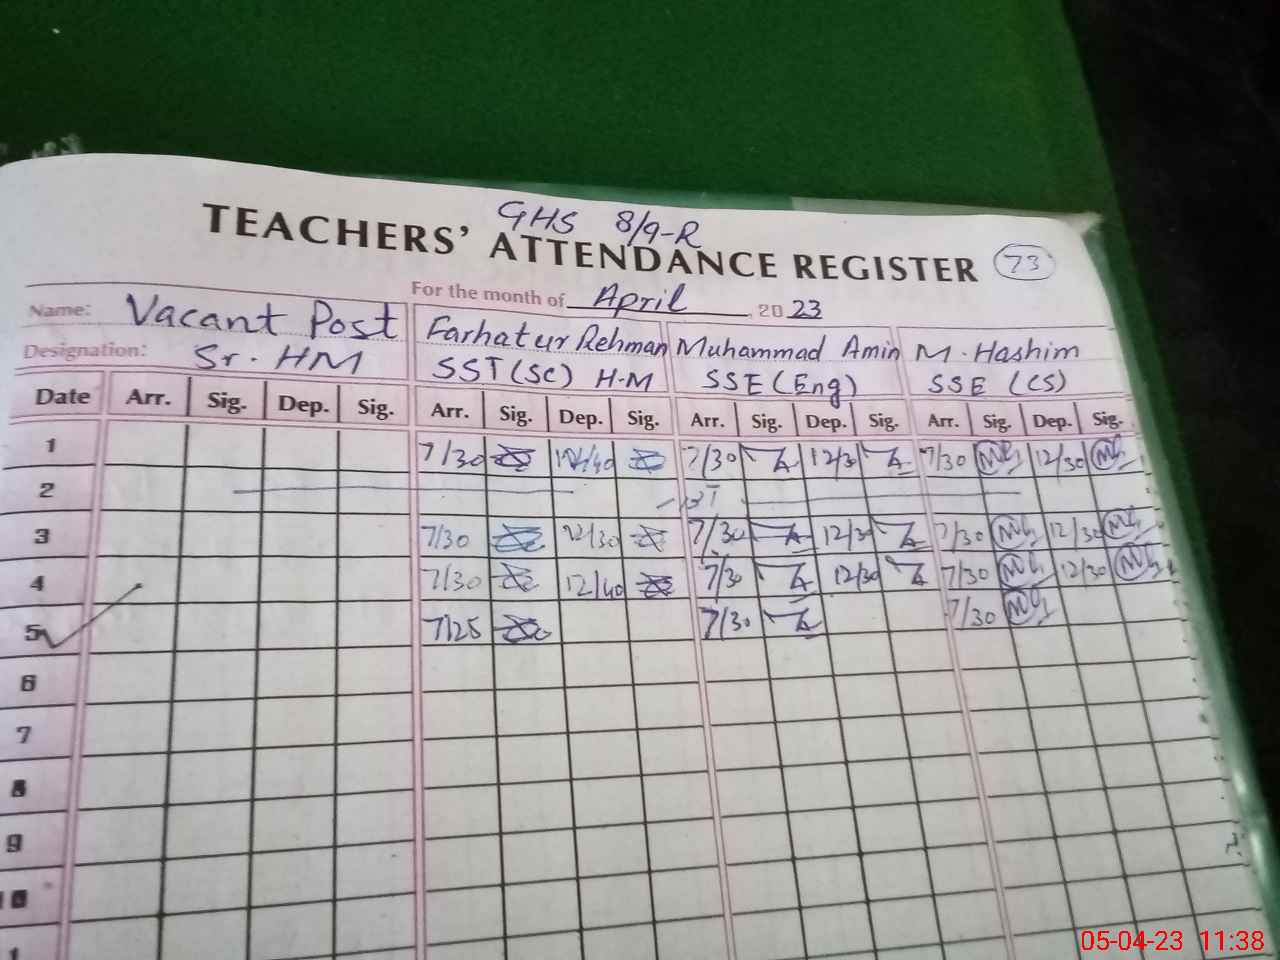 GHS 8/9-R
TEACHERS' ATTENDANCE REGISTER 73
For the month of April, 2023
Name: Vacant Post Farhat ur Rehman Muhammad Amin M. Hashim
Designation: Sr. HM SST (SC) H.M SSE (Eng) SSE (CS)
Date Arr. Sig. Dep. Sig. Arr. Sig. Dep. Sig. Arr. Sig. Dep. Sig. Arr. Sig. Dep. Sig.
1 7/30 12/40 7/30 12/30 7/30 12/30
2
3 7/30 12/30 7/30 12/30 7/30 12/30
4 7/30 12/40 7/30 12/30 7/30 12/30
5 7/25 7/30 7/30
6
7
8
9
10
05-04-23 11:38